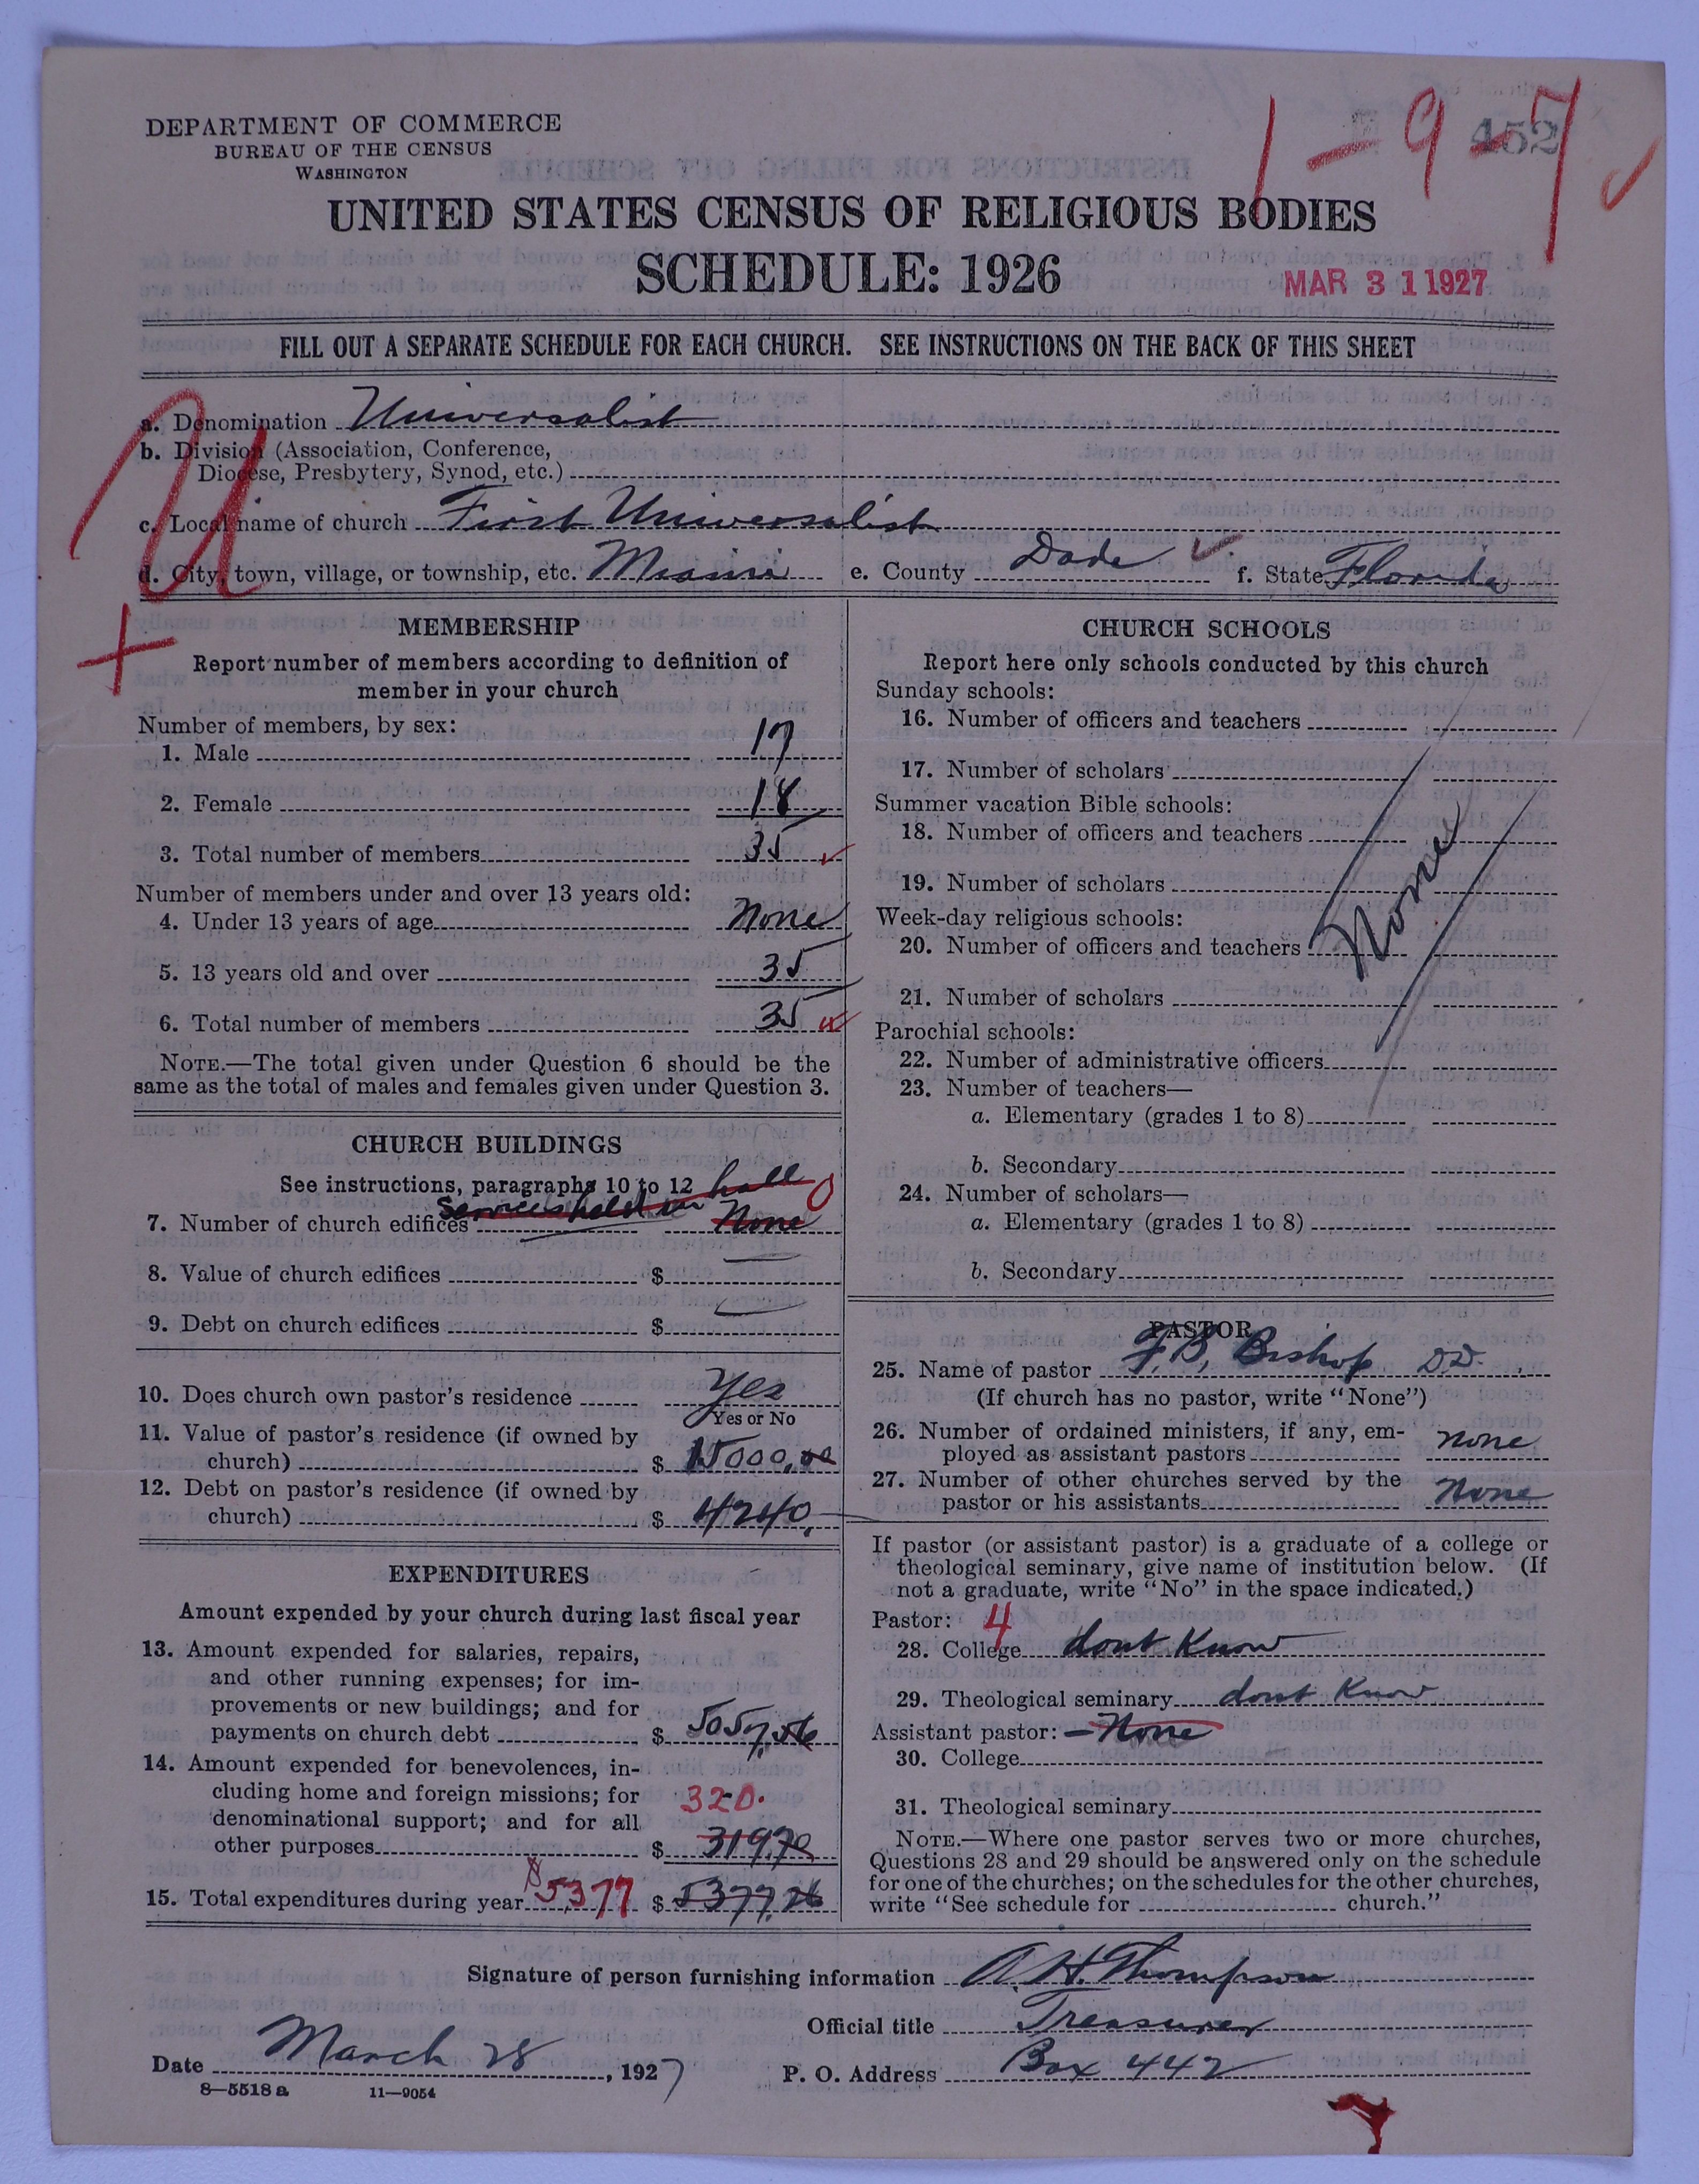 DEPARTMENT OF COMMERCE
BUREAU OF THE CENSUS
WASHINGTON
1-9-7
452
UNITED STATES CENSUS OF RELIGIOUS BODIES
SCHEDULE: 1926
MAR 31 1927
FILL OUT A SEPARATE SCHEDULE FOR EACH CHURCH. SEE INSTRUCTIONS ON THE BACK OF THIS SHEET
U
a. Denomination Universalist
b. Division (Association, Conference,
Diocese, Presbytery, Synod, etc.)
c. Local name of church First Universalist
d. City, town, village, or township, etc. Miami e. County Dade f. State Florida
MEMBERSHIP
Report number of members according to definition of
member in your church
Number of members, by sex:
1. Male 17
2. Female 18
3. Total number of members 35
Number of members under and over 13 years old:
4. Under 13 years of age None
5. 13 years old and over 35
6. Total number of members 35
NOTE.—The total given under Question 6 should be the
same as the total of males and females given under Question 3.
CHURCH BUILDINGS
See instructions, paragraphs 10 to 12
Services held in hall 0
7. Number of church edifices None
8. Value of church edifices $
9. Debt on church edifices $
10. Does church own pastor's residence Yes
Yes or No
11. Value of pastor's residence (if owned by
church) $ 15000.00
12. Debt on pastor's residence (if owned by
church) $ 4240.
EXPENDITURES
Amount expended by your church during last fiscal year
13. Amount expended for salaries, repairs,
and other running expenses; for im-
provements or new buildings; and for
payments on church debt $ 5057.56
14. Amount expended for benevolences, in-
cluding home and foreign missions; for
denominational support; and for all
320.
other purposes $ 319.70
15. Total expenditures during year $5377 $ 5377.26
CHURCH SCHOOLS
Report here only schools conducted by this church
Sunday schools:
16. Number of officers and teachers
17. Number of scholars
Summer vacation Bible schools:
18. Number of officers and teachers
19. Number of scholars
None
Week-day religious schools:
20. Number of officers and teachers
21. Number of scholars
Parochial schools:
22. Number of administrative officers
23. Number of teachers—
a. Elementary (grades 1 to 8)
b. Secondary
24. Number of scholars—
a. Elementary (grades 1 to 8)
b. Secondary
PASTOR
25. Name of pastor F. B. Bishop D.D.
(If church has no pastor, write "None")
26. Number of ordained ministers, if any, em-
ployed as assistant pastors none
27. Number of other churches served by the
pastor or his assistants None
If pastor (or assistant pastor) is a graduate of a college or
theological seminary, give name of institution below. (If
not a graduate, write "No" in the space indicated.)
Pastor: 4
28. College dont Know
29. Theological seminary dont Know
Assistant pastor: — None
30. College
31. Theological seminary
NOTE.—Where one pastor serves two or more churches,
Questions 28 and 29 should be answered only on the schedule
for one of the churches; on the schedules for the other churches,
write "See schedule for church."
Signature of person furnishing information A. H. Thompson
Official title Treasurer
Date March 28, 1927 P. O. Address Box 442
8—5518 a 11—9054